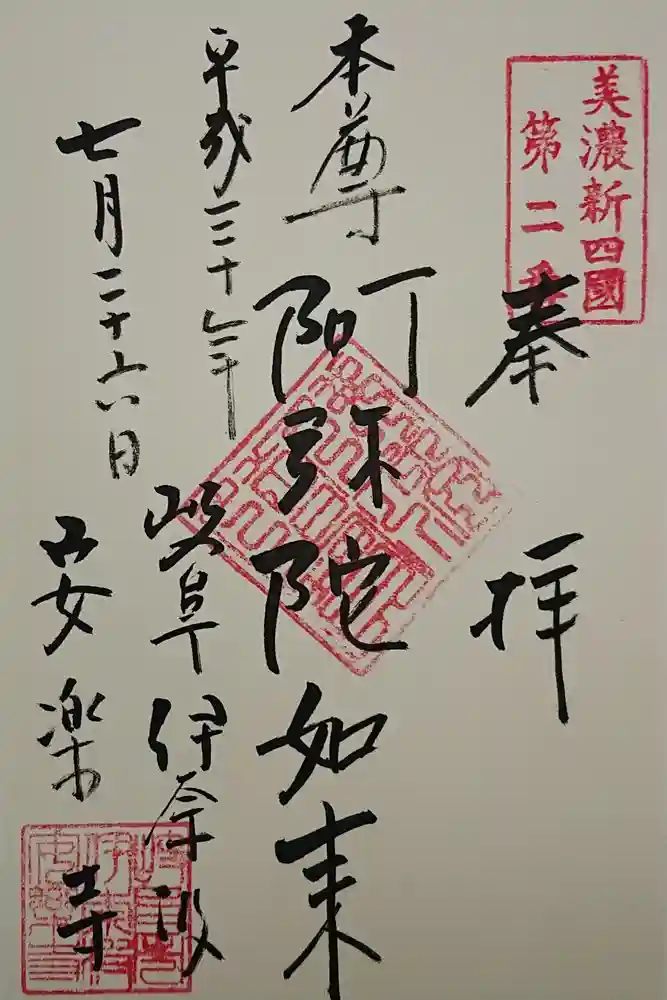 美濃新四國
第二番
奉拝
本尊 阿弥陀如来
平成三十年
岐阜伊奈波
七月二十六日
安楽寺